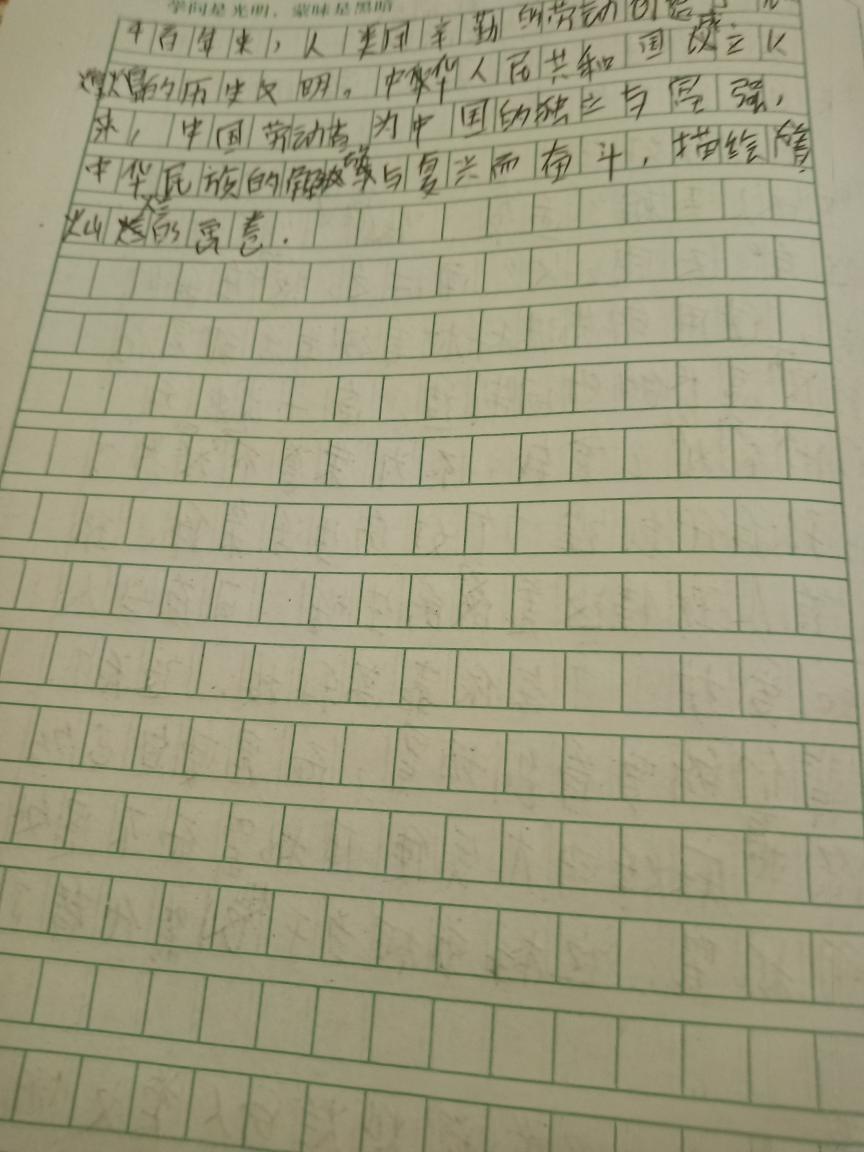 学问是光明，蒙昧是黑暗
千百年来，人类用辛勤的劳动创造了
辉煌的历史文明。中华人民共和国成立以
来，中国劳动者为中国的独立与富强，
中华民族的解放与复兴而奋斗，描绘着
灿烂的画卷.